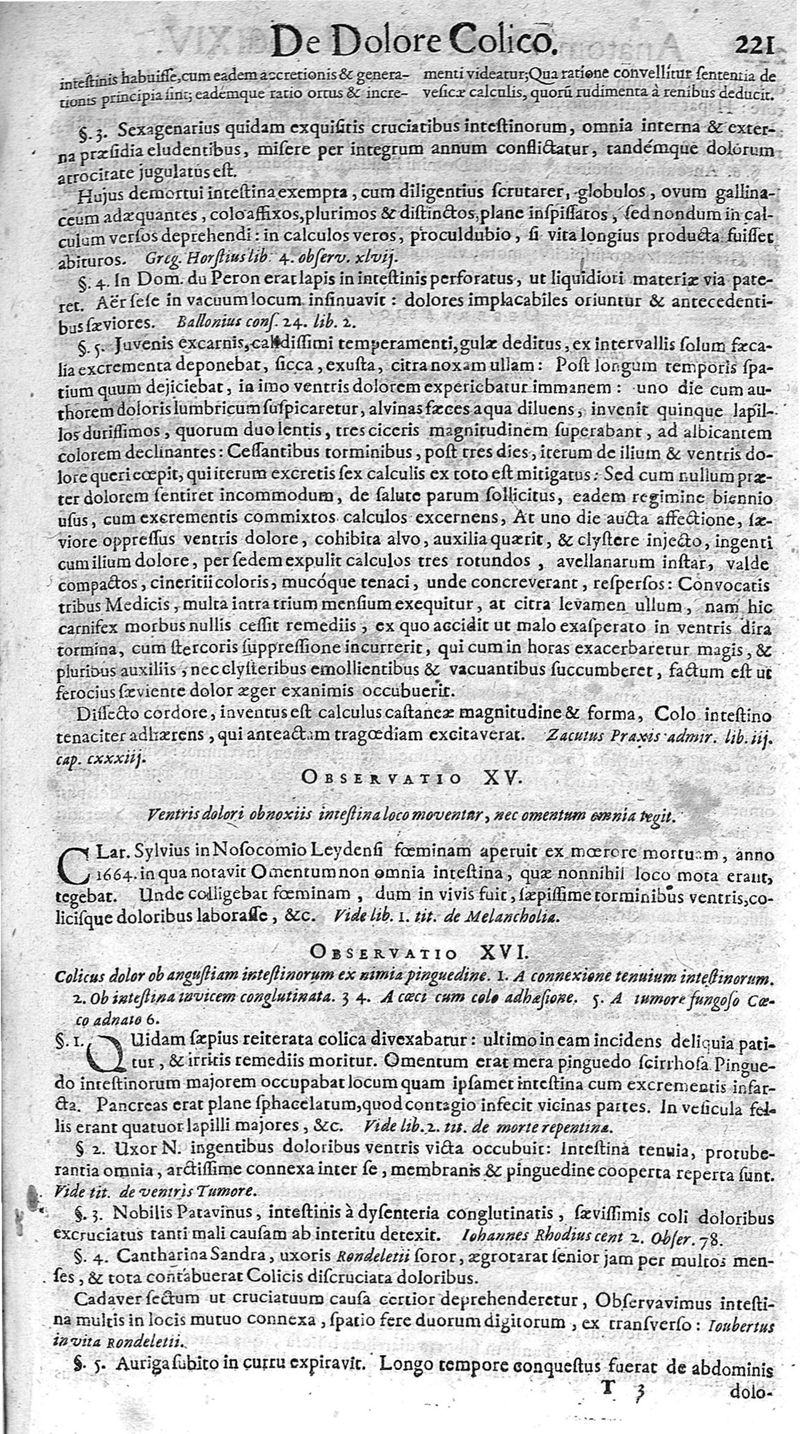 De Dolore Colico.
221
inteſtinis habuiſſe,cum eadem accretionis & genera-
tionis principia ſint; eadémque ratio ortus & incre-
menti videatur;Qua ratione convellitur ſententia de
veſicæ calculis, quorū rudimenta à renibus deducit.
§. 3. Sexagenarius quidam exquiſitis cruciatibus inteſtinorum, omnia interna & exter-
na præſidia eludentibus, miſere per integrum annum conflictatur, tandémque dolorum
atrocitate jugulatus eſt.
Hujus demortui inteſtina exempta, cum diligentius ſcrutarer, globulos, ovum gallina-
ceum adæquantes, colo affixos,plurimos & diſtinctos,plane inſpiſſatos, ſed nondum in cal-
culum verſos deprehendi: in calculos veros, proculdubio, ſi vita longius producta fuiſſet
abituros. Greg. Horſtius lib. 4. obſerv. xlvij.
§. 4. In Dom. du Peron erat lapis in inteſtinis perforatus, ut liquidiori materiæ via pate-
ret. Aër ſeſe in vacuum locum inſinuavit: dolores implacabiles oriuntur & antecedenti-
bus ſæviores. Ballonius conſ. 24. lib. 2.
§. 5. Juvenis excarnis, calidiſſimi temperamenti, gulæ deditus, ex intervallis ſolum fæca-
lia excrementa deponebat, ſicca, exuſta, citra noxam ullam: Poſt longum temporis ſpa-
tium quum dejiciebat, in imo ventris dolorem experiebatur immanem: uno die cum au-
thorem doloris lumbricum ſuſpicaretur, alvinas fæces aqua diluens, invenit quinque lapil-
los duriſſimos, quorum duo lentis, tres ciceris magnitudinem ſuperabant, ad albicantem
colorem declinantes: Ceſſantibus torminibus, poſt tres dies, iterum de ilium & ventris do-
lore queri cœpit, qui iterum excretis ſex calculis ex toto eſt mitigatus: Sed cum nullum præ-
ter dolorem ſentiret incommodum, de ſalute parum ſollicitus, eadem regimine biennio
uſus, cum excrementis commixtos calculos excernens, At uno die aucta affectione, ſæ-
viore oppreſſus ventris dolore, cohibita alvo, auxilia quærit, & clyſtere injecto, ingenti
cum ilium dolore, per ſedem expulit calculos tres rotundos, avellanarum inſtar, valde
compactos, cineritii coloris, mucóque tenaci, unde concreverant, reſperſos: Convocatis
tribus Medicis, multa intra trium menſium exequitur, at citra levamen ullum, nam hic
carnifex morbus nullis ceſſit remediis, ex quo accidit ut malo exaſperato in ventris dira
tormina, cum ſtercoris ſuppreſſione incurrerit, qui cum in horas exacerbaretur magis, &
pluribus auxiliis, nec clyſteribus emollientibus & vacuantibus ſuccumberet, factum eſt ut
ferocius ſæviente dolor æger exanimis occubuerit.
Diſſecto cordore, inventus eſt calculus caſtaneæ magnitudine & forma, Colo inteſtino
tenaciter adhærens, qui anteactam tragœdiam excitaverat. Zacutus Praxis admir. lib. iij.
cap. cxxxiij.
OBSERVATIO XV.
Ventris dolori obnoxiis inteſtina loco moventur, nec omentum omnia tegit.
CLar. Sylvius in Noſocomio Leydenſi fœminam aperuit ex mœrore mortuam, anno
1664. in qua notavit Omentum non omnia inteſtina, quæ nonnihil loco mota erant,
tegebat. Unde colligebat fœminam, dum in vivis fuit, ſæpiſſime torminibus ventris,co-
liciſque doloribus laboraſſe, &c. Vide lib. 1. tit. de Melancholia.
OBSERVATIO XVI.
Colicus dolor ob anguſtiam inteſtinorum ex nimia pinguedine. 1. A connexione tenuium inteſtinorum.
2. Ob inteſtina invicem conglutinata. 3 4. A cœci cum colo adhæſione. 5. A tumore fungoſo Cœ-
co adnato 6.
§. 1. QUidam ſæpius reiterata colica divexabatur: ultimo in eam incidens deliquia pati-
tur, & irritis remediis moritur. Omentum erat mera pinguedo ſcirrhoſa. Pingue-
do inteſtinorum majorem occupabat locum quam ipſamet inteſtina cum excrementis infar-
cta. Pancreas erat plane ſphacelatum,quod contagio infecit vicinas partes. In veſicula fel-
lis erant quatuor lapilli majores, &c. Vide lib. 2. tit. de morte repentina.
§ 2. Uxor N. ingentibus doloribus ventris victa occubuit: Inteſtina tenuia, protube-
rantia omnia, arctiſſime connexa inter ſe, membranis & pinguedine cooperta reperta ſunt.
Vide tit. de ventris Tumore.
§. 3. Nobilis Patavinus, inteſtinis à dyſenteria conglutinatis, ſæviſſimis coli doloribus
excruciatus tanti mali cauſam ab interitu detexit. Iohannes Rhodius cent 2. Obſer. 78.
§. 4. Cantharina Sandra, uxoris Rondeletii ſoror, ægrotarat ſenior jam per multos men-
ſes, & tota contabuerat Colicis diſcruciata doloribus.
Cadaver ſectum ut cruciatuum cauſa certior deprehenderetur, Obſervavimus inteſti-
na multis in locis mutuo connexa, ſpatio fere duorum digitorum, ex tranſverſo: Ioubertus
in vita Rondeletii.
§. 5. Auriga ſubito in curru expiravit. Longo tempore conqueſtus fuerat de abdominis
T 3
dolo-